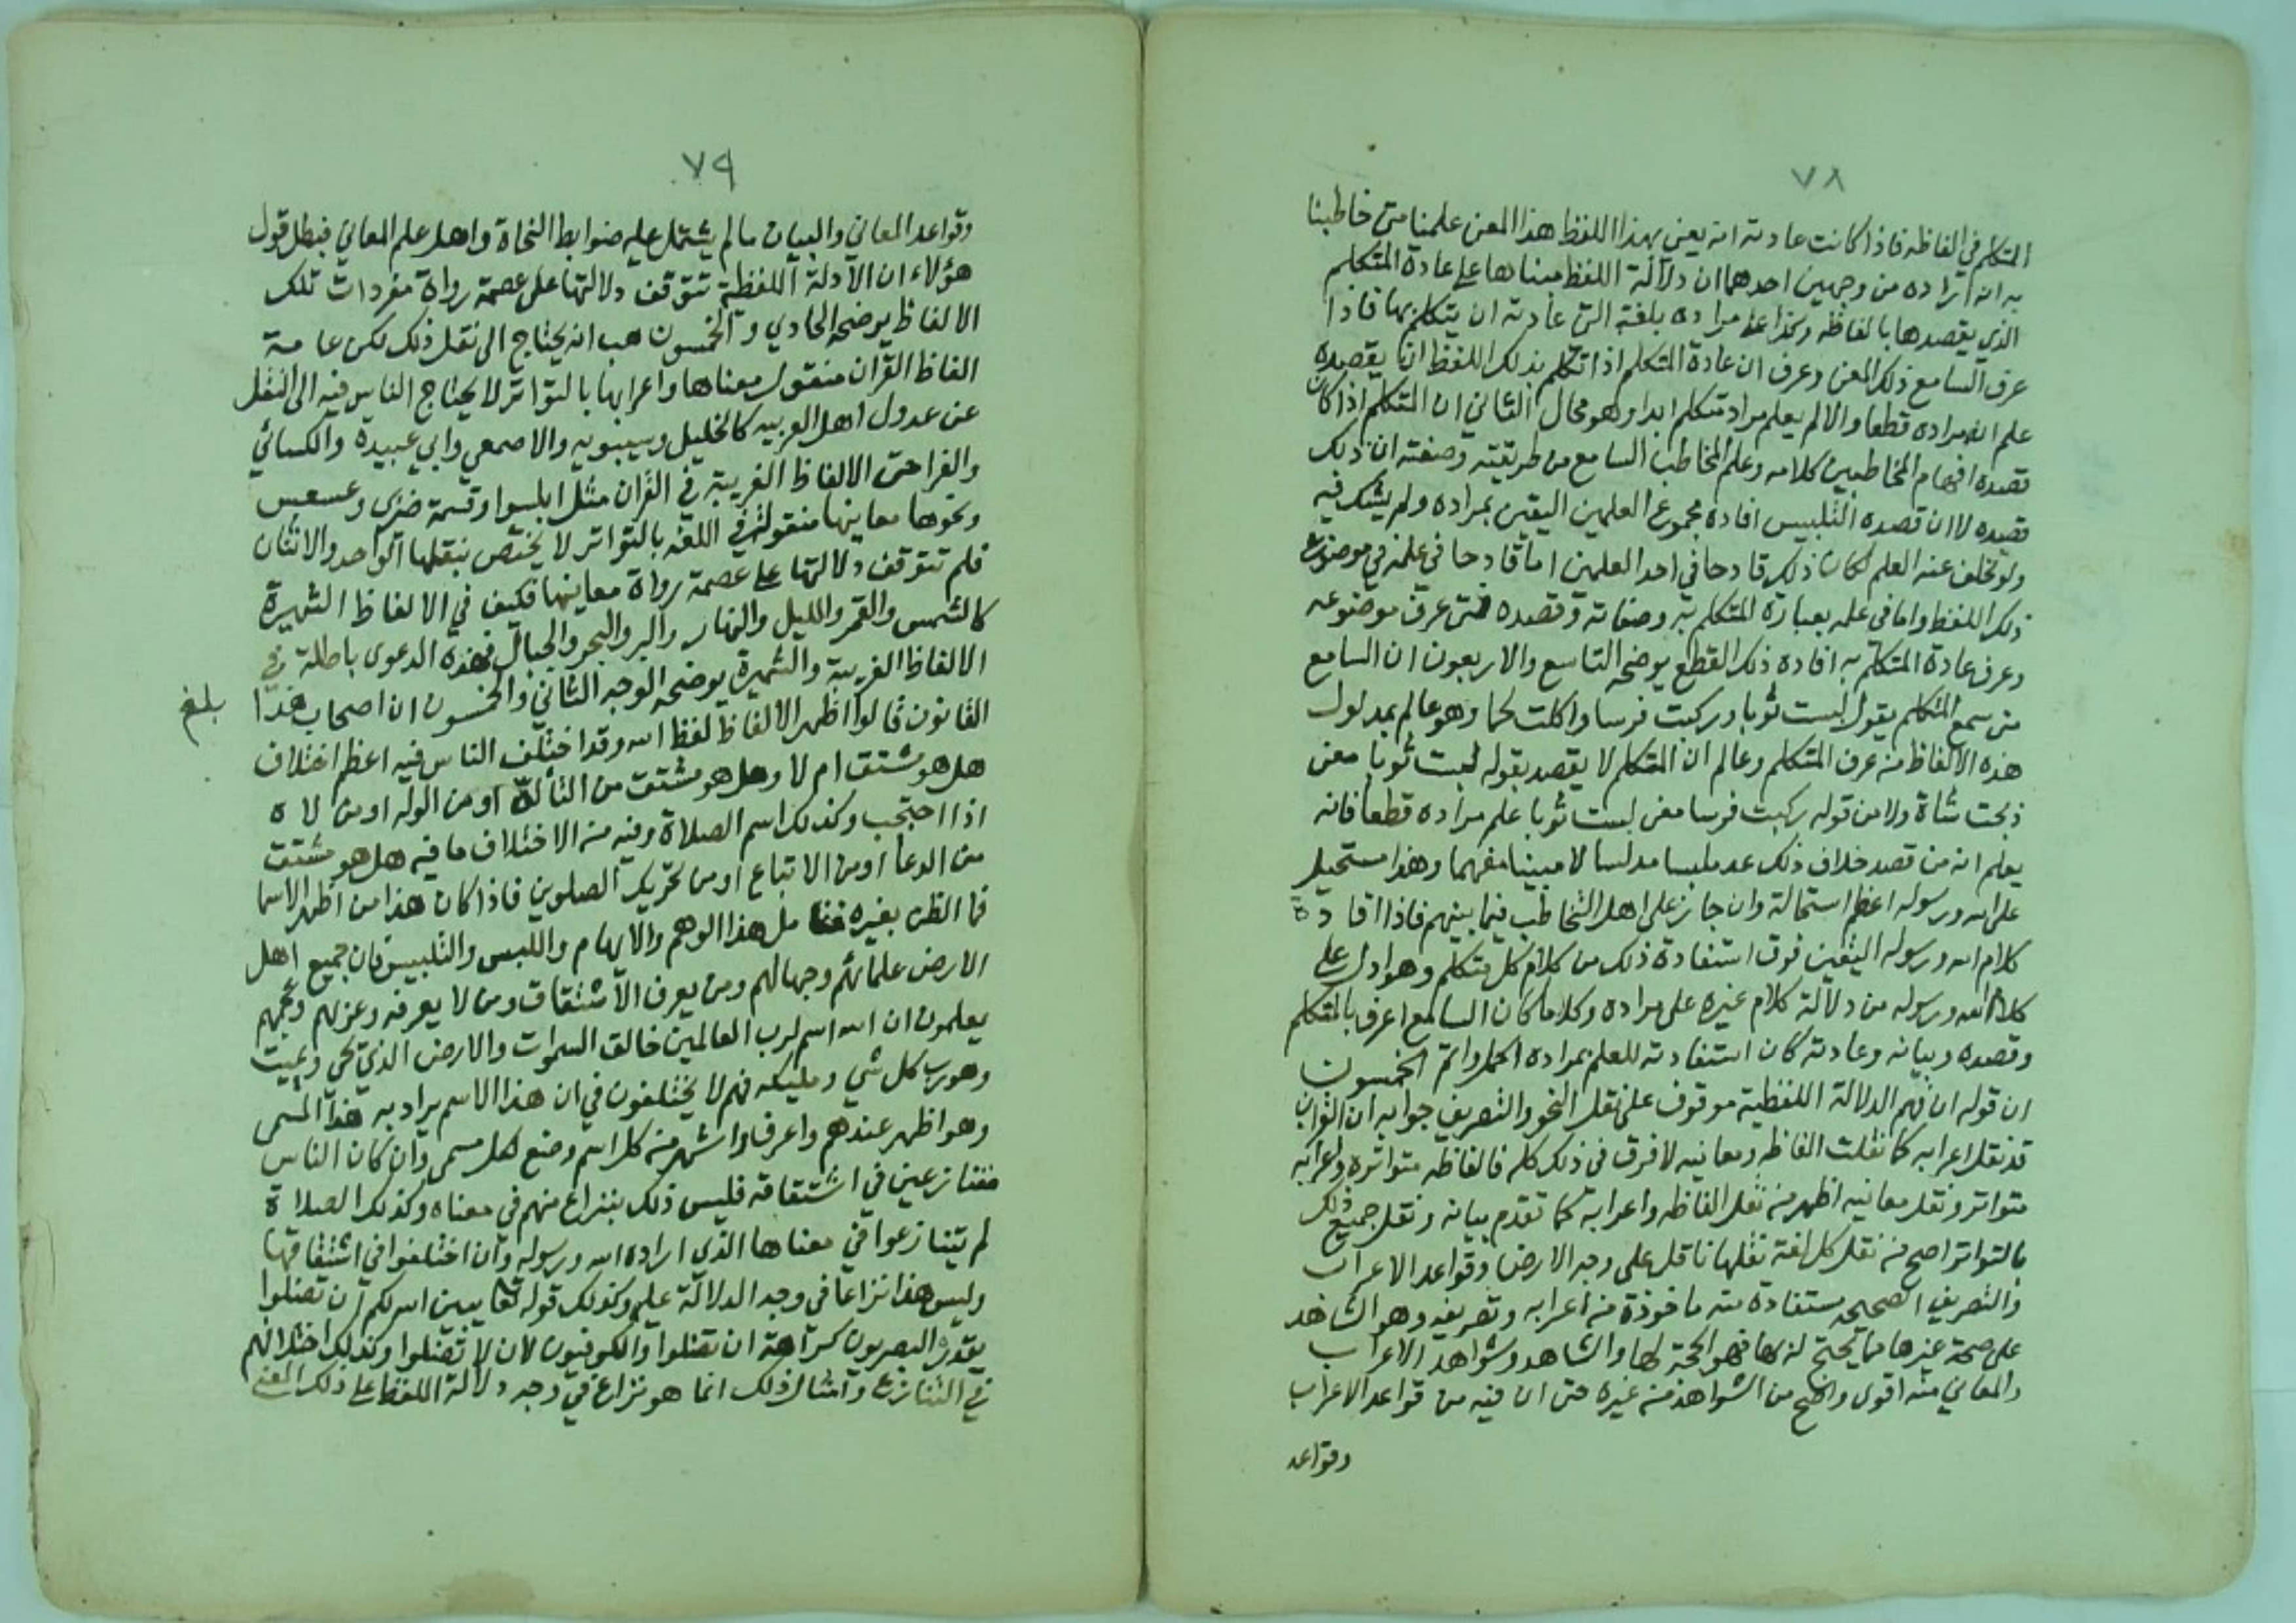 ٧٨
المتكلم في الفاظه فاذا كانت عادته انه يعني بهذا اللفظ هذا المعنى علمنا متى خاطبنا
به انه اراده من وجهين احدهما ان دلالة اللفظ مبناها على عادة المتكلم
الذي يقصدها بالفاظه وكذا على مراده بلغته التي عادته ان يتكلم بها فاذا
عرف السامع ذلك المعنى وعرف ان عادة المتكلم اذا تكلم بذلك اللفظ ان يقصده
علم انه مراده قطعا والا لم يعلم مراد متكلم ابدا وهو محال الثاني ان المتكلم اذا كان
قصده افهام المخاطبين كلامه وعلم المخاطب السامع من طريقته وصفته ان ذلك
قصده لا ان قصده التلبيس افاده مجموع العلمين اليقين بمراده ولم يشك فيه
ولو تخلف عنه العلم لكان ذلك قادحا في احد العلمين اما قادحا في علمه في موضوع
ذلك اللفظ واما في علمه بعبارة المتكلم به وصفاته وقصده فمتى عرف موضوعه
وعرف عادة المتكلم به افاده ذلك القطع يوضحه التاسع والاربعون ان السامع
متى سمع المتكلم يقول لبست ثوبا وركبت فرسا واكلت لحما وهو عالم بمدلول
هذه الالفاظ من عرف المتكلم وعالم ان المتكلم لا يقصد بقوله لبست ثوبا معنى
ذبحت شاة ولا من قوله ركبت فرسا معنى لبست ثوبا علم مراده قطعا فانه
يعلم انه من قصد خلاف ذلك عد ملبسا مدلسا لا مبينا مفهما وهذا مستحيل
على الله ورسوله اعظم استحالة وان جاز على اهل التخاطب فيما بينهم فاذا افادة
كلام الله ورسوله اليقين فوق استفادة ذلك من كلام كل متكلم وهو ادل على
كلام الله ورسوله من دلالة كلام غيره على مراده وكلما كان السامع اعرف بالمتكلم
وقصده وبيانه وعادته كان استفادته للعلم بمراده اكمل واتم الخمسون
ان قوله ان فهم الدلالة اللفظية موقوف على نقل النحو والتصريف جوابه ان القران
قد نقل اعرابه كما نقلت الفاظه ومعانيه لا فرق في ذلك كله فالفاظه متواترة واعرابه
متواتر ونقل معانيه اظهر من نقل الفاظه واعرابه كما تقدم بيانه ونقل جميع ذلك
بالتواتر اصح من نقل كل لغة نقلها ناقل على وجه الارض وقواعد الاعراب
والتصريف الصحيحه مستفادة منه ماخوذة من اعرابه وتصريفه وهو الشاهد
على صحة غيرها مما يحتج له بها فهو الحجة لها والشاهد وشواهد الاعراب
والمعاني منه اقوى واصح من الشواهد من غيره حتى ان فيه من قواعد الاعراب
وقواعد
٧٩
وقواعد المعاني والبيان ما لم يشتمل عليه ضوابط النحاة واهل علم المعاني فبطل قول
هؤلاء ان الادلة اللفظية تتوقف دلالتها على عصمة رواة مفردات تلك
الالفاظ يوضحه الحادي والخمسون هب انه يحتاج الى نقل ذلك لكن عامة
الفاظ القران منقول معناها واعرابها بالتواتر لا يحتاج الناس فيه الى النقل
عن عدول اهل العربيه كالخليل وسيبويه والاصمعي وابي عبيدة والكسائي
والفرا حتى الالفاظ الغريبة في القران مثل ابلسوا وقسمة ضيزى وعسعس
ونحوها معاينها منقولة في اللغه بالتواتر لا يختص بنقلها الواحد والاثنان
فلم تتوقف دلالتها على عصمة رواة معاينها فكيف في الالفاظ الشهيرة
كالشمس والقمر والليل والنهار والبر والبحر والجبال فهذه الدعوى باطلة في
الالفاظ الغريبة والشهيرة يوضحه الوجه الثاني والخمسون ان اصحاب هذا
بلغ
القانون قالوا اظهر الالفاظ لفظ الله وقد اختلف الناس فيه اعظم اختلاف
هل هو مشتق ام لا وهل هو مشتق من التأله او من الوله او من لاه
اذا احتجب وكذلك اسم الصلاة وفيه من الاختلاف ما فيه هل هو مشتق
من الدعا او من الاتباع او من تحريك الصلوين فاذا كان هذا من اظهر الاسما
فما الظن بغيره فتأمل هذا الوهم والايهام واللبس والتلبيس فان جميع اهل
الارض علمائهم وجهالهم ومن يعرف الاشتقاق ومن لا يعرفه وعربهم وعجمهم
يعلمون ان الله اسم لرب العالمين خالق السموات والارض الذي يحي ويميت
وهو رب كل شي ومليكه فهم لا يختلفون في ان هذا الاسم يراد به هذا المسمى
وهو اظهر عندهم واعرف واشهر من كل اسم وضع لكل مسمى وان كان الناس
متنازعين في اشتقاقه فليس ذلك بنزاع منهم في معناه وكذلك الصلاة
لم يتنازعوا في معناها الذي اراده الله ورسوله وان اختلفوا في اشتقاقها
وليس هذا نزاعا في وجه الدلالة عليه وكذلك قوله تعا يبين الله لكم ان تضلوا
يقدره البصريون كراهة ان تضلوا والكوفيون لان لا تضلوا وكذلك اختلافهم
في التنازع وامثال ذلك انما هو نزاع في وجه دلالة اللفظ على ذلك المعنى